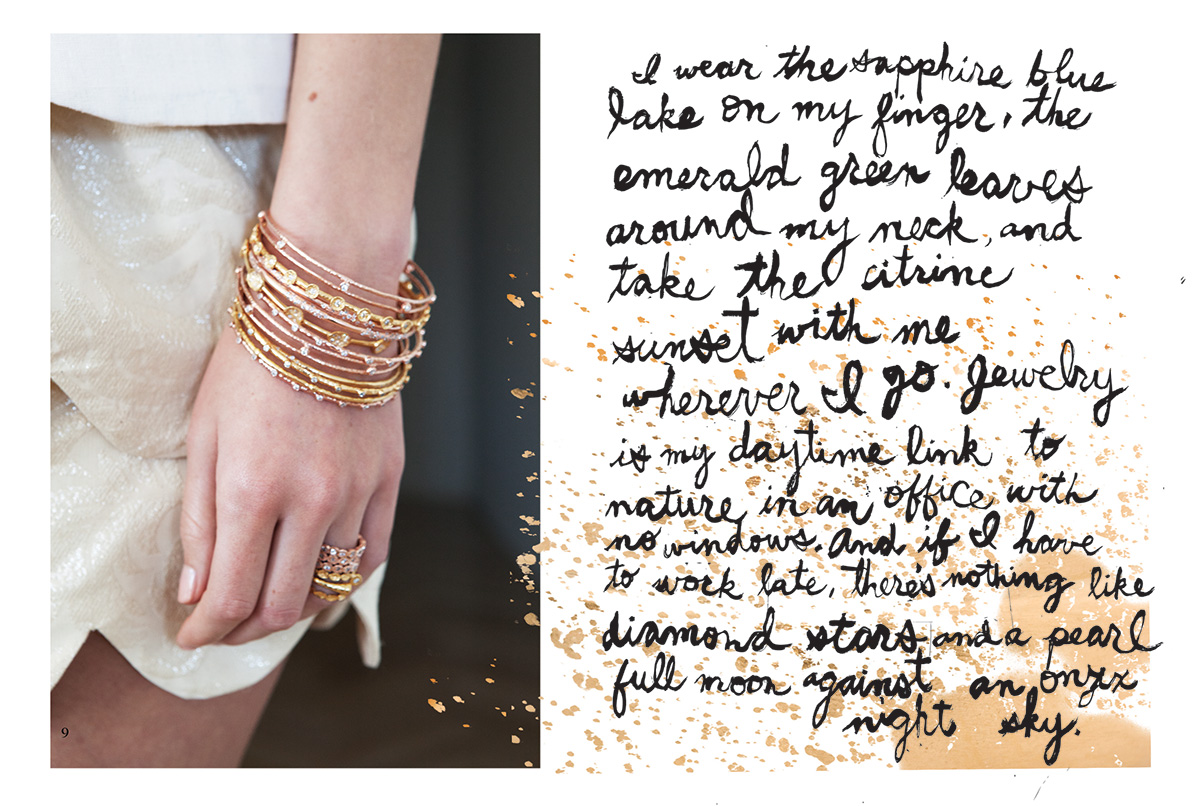 I wear the sapphire blue
lake on my finger, the
emerald green leaves
around my neck, and
take the citrine
sunset with me
wherever I go. Jewelry
is my daytime link to
nature in an office with
no windows. And if I have
to work late, there's nothing like
diamond stars and a pearl
full moon against an onyx
night sky.
9